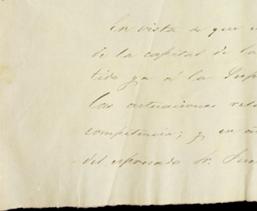 En vista de que
de la capital de la
tido ya á la Sup
Las actuaciones rela
competencia; y en
del expresado Dr.